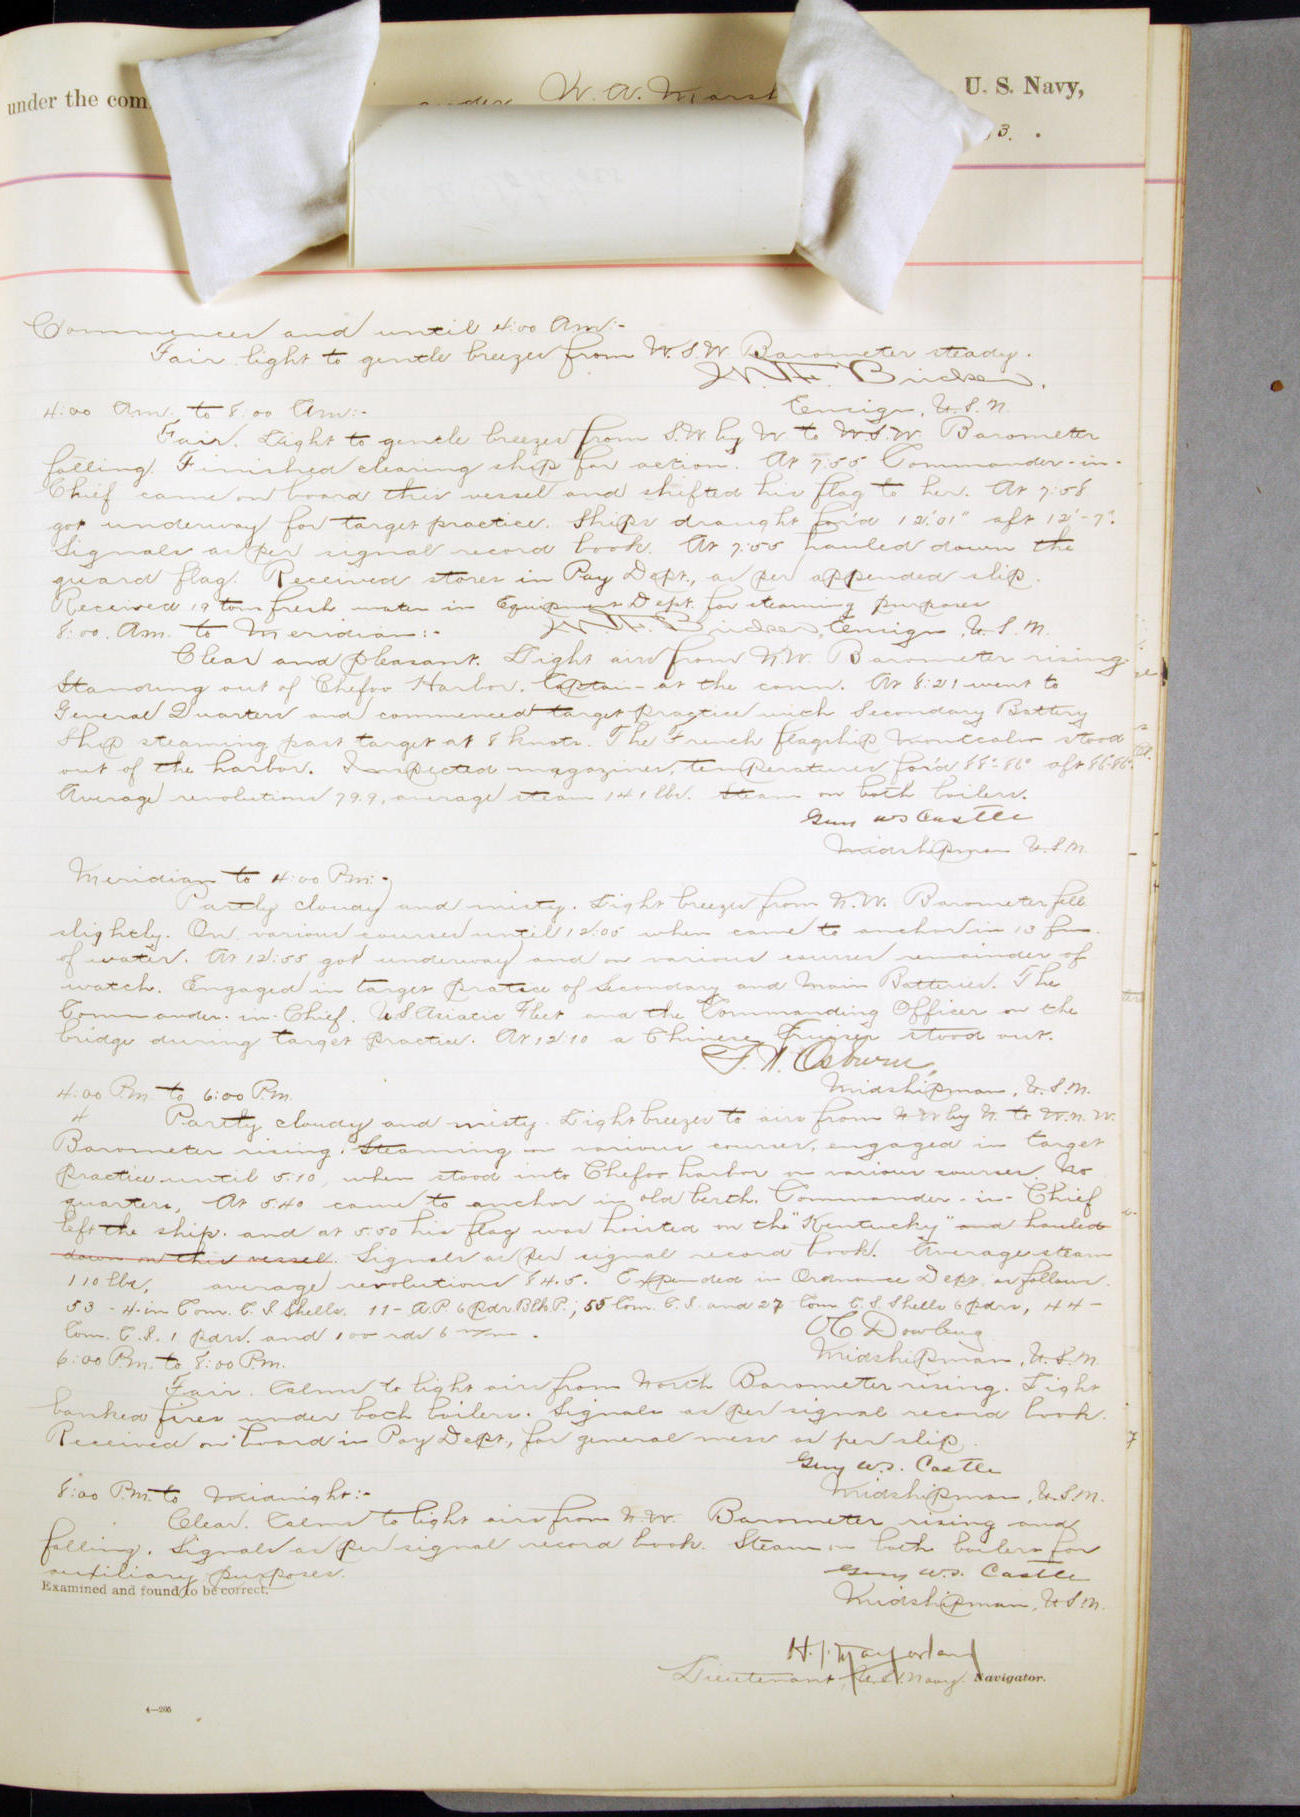 under the com
W. A. Marsh
U. S. Navy,
3.
Commences and until 4:00 Am:-
Fair. light to gentle breezes from W.S.W. Barometer steady.
Ensign, U.S.N.
4:00 Am. to 8:00 Am:-
Fair. Light to gentle breezes from S.W. by W. to W.S.W. Barometer
falling. Finished clearing ship for action. At 7:55 Commander-in-
Chief came on board this vessel and shifted his flag to her. At 7:58
got underway for target practice. Ships draught for'd 12'01" aft 12'-7".
Signals as per signal record book. At 7:55 hauled down the
guard flag. Received stores in Pay Dept., as per appended slip.
Received 19 tons fresh water in Equipment Dept. for steaming purposes
8:00 Am. to Meridian:-
Ensign, U.S.N.
Clear and pleasant. Light airs from N.W. Barometer rising
Standing out of Chefoo Harbor. Captain at the conn. At 8:21 went to
General Quarters and commenced target practice with Secondary Battery
Ship steaming past target at 8 knots. The French flagship Montcalm stood
out of the harbor. Inspected magazines, temperatures for'd 88°-86° aft 86°-86°.
Average revolutions 79.9, average steam 141 lbs. Steam on both boilers.
Guy W.S. Castle
Midshipman U.S.N.
Meridian to 4:00 P.m:-
Partly cloudy and misty. Light breezes from N.W. Barometer fell
slightly. On various courses until 12:05 when came to anchor in 13 fms.
of water. At 12:55 got underway and on various courses remainder of
watch. Engaged in target pratice of Secondary and Main Batteries. The
Commander-in-Chief. U.S. Asiatic Fleet and the Commanding Officer on the
bridge during target practice. At 12:10 a Chinese Cruiser stood out.
Osburn,
Midshipman, U.S.N.
4:00 P.m. to 6:00 P.m.
4 Partly cloudy and misty. Light breezes to airs from N.W. by N. to W.N.W.
Barometer rising. Steaming on various courses, engaged in target
practice until 5.10, when stood into Chefoo harbor on various courses. No
quarters. At 5.40 came to anchor in old berth. Commander-in-Chief
left the ship. and at 5.50 his flag was hoisted on the "Kentucky" and hauled
down on this vessel. Signals as per signal record book. Average steam
110 lbs, average revolutions 84.5. Expended in Ordnance Dept. as follows.
53 - 4-in Com. C.S. Shells. 11 - A.P. 6 pdr. Blk P.; 55 Com. C.S. and 27 Com C.S. Shells 6 pdrs, 44-
Com. C.S. 1 pdrs. and 100 rds 6 m/m.
Dowling
Midshipman, U.S.N.
6:00 P.m. to 8:00 P.m.
Fair. Calms to light airs from North Barometer rising. Light
banked fires under both boilers. Signals as per signal record book.
Received on board in Pay Dept., for general mess as per slip.
Guy W.S. Castle
Midshipman, U.S.N.
8:00 P.m. to Midnight:-
Clear. Calms to light airs from N.W. Barometer rising and
falling. Signals as per signal record book. Steam on both boilers for
auxiliary purposes.
Guy W.S. Castle
Examined and found to be correct.
Midshipman, U.S.N.
Lieutenant, U.S. Navy. Navigator.
4—205